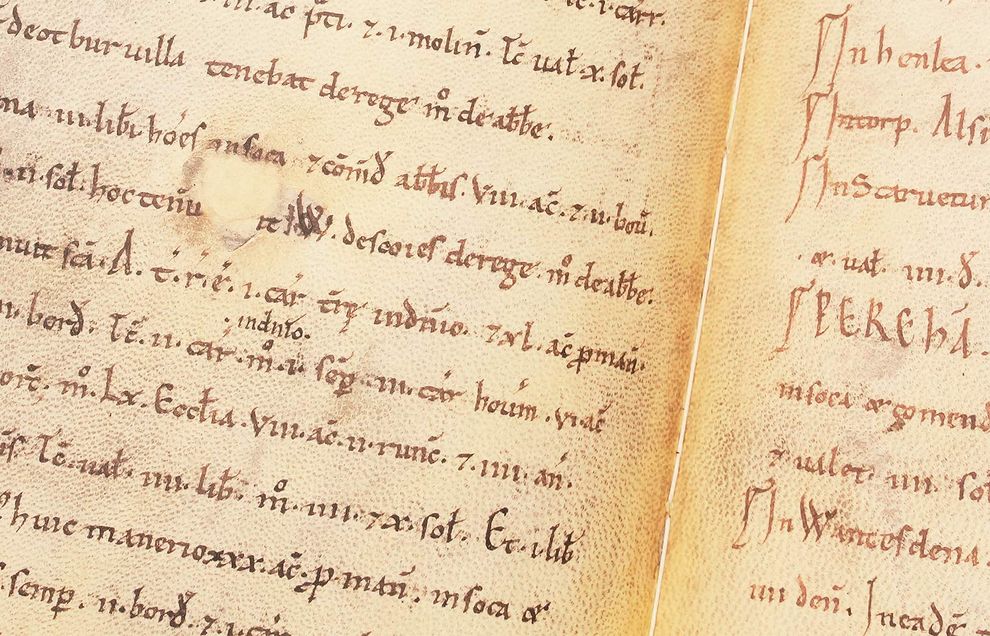 ac p̄ti. ⁊. i. molin̄. Tc̄ ual̵. x. sol̵.
deotburuilla tenebat de rege m̊ de abb̄e.
lib̄i ho͞es in soca ⁊ co͞md̄ abb̄is. VIII. ac̄. ⁊. ii. bou̅.
ii. sol̵. hoc tenu̅ it W. descoies de rege m̊ de abb̄e.
sc̄a. A. t̄. r̄. ē. i. car̄ tr̄e in dn̄io. ⁊ xl. ac̄ p̱ man̄.
. in dn̄io.
bord̄. Tc̄. ii. car̄. m̊. i. semp̱. iii. car̄ hou̅m. vi. ac̄
m̊. Lx. Eccl̄ia. VIII. ac̄. ii. runc̄. ⁊. iiii. an̄.
Tc̄. ual̵. iiii. lib̄. m̊. iiii. ⁊ x. sol̵. Et. i. lib̄
huic manerio xxx. ac̄. p̱ man̄. in soca &
semp̱. ii. bord̄. ⁊. i. car̄
In henlea.
In torp. Alsi
In Scaruetun
. & ual̵. iiii. d̄.
SPEREhA̅.
in soca & comend
⁊ ualet. iiii. sol̵
In Wantesdena.
iiii den̄. In eadē